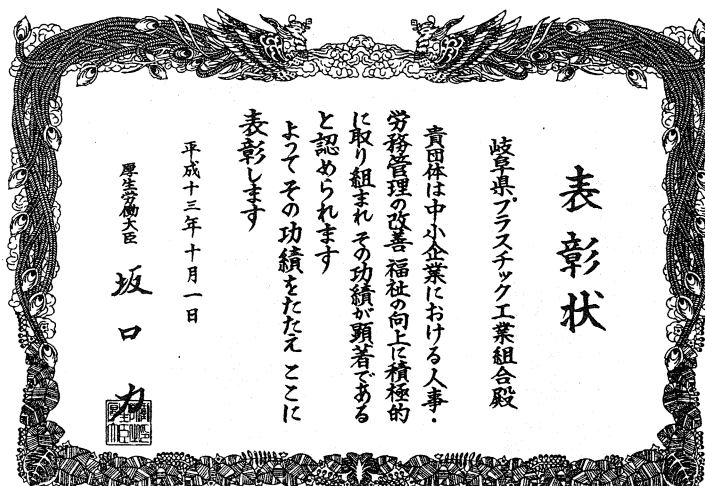 表彰状
岐阜県プラスチック工業組合殿
貴団体は中小企業における人事・
労務管理の改善 福祉の向上に積極的
に取り組まれ その功績が顕著である
と認められます
よって その功績をたたえ ここに
表彰します
平成十三年十月一日
厚生労働大臣 坂口 力